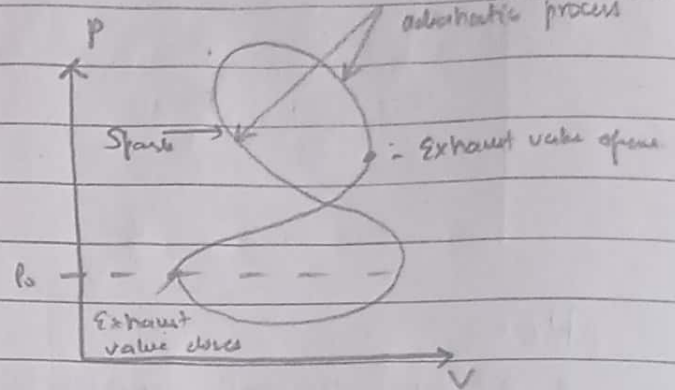 P
adiabatic process
Spark
Exhaust valve opens
P₀
Exhaust
valve closes
V